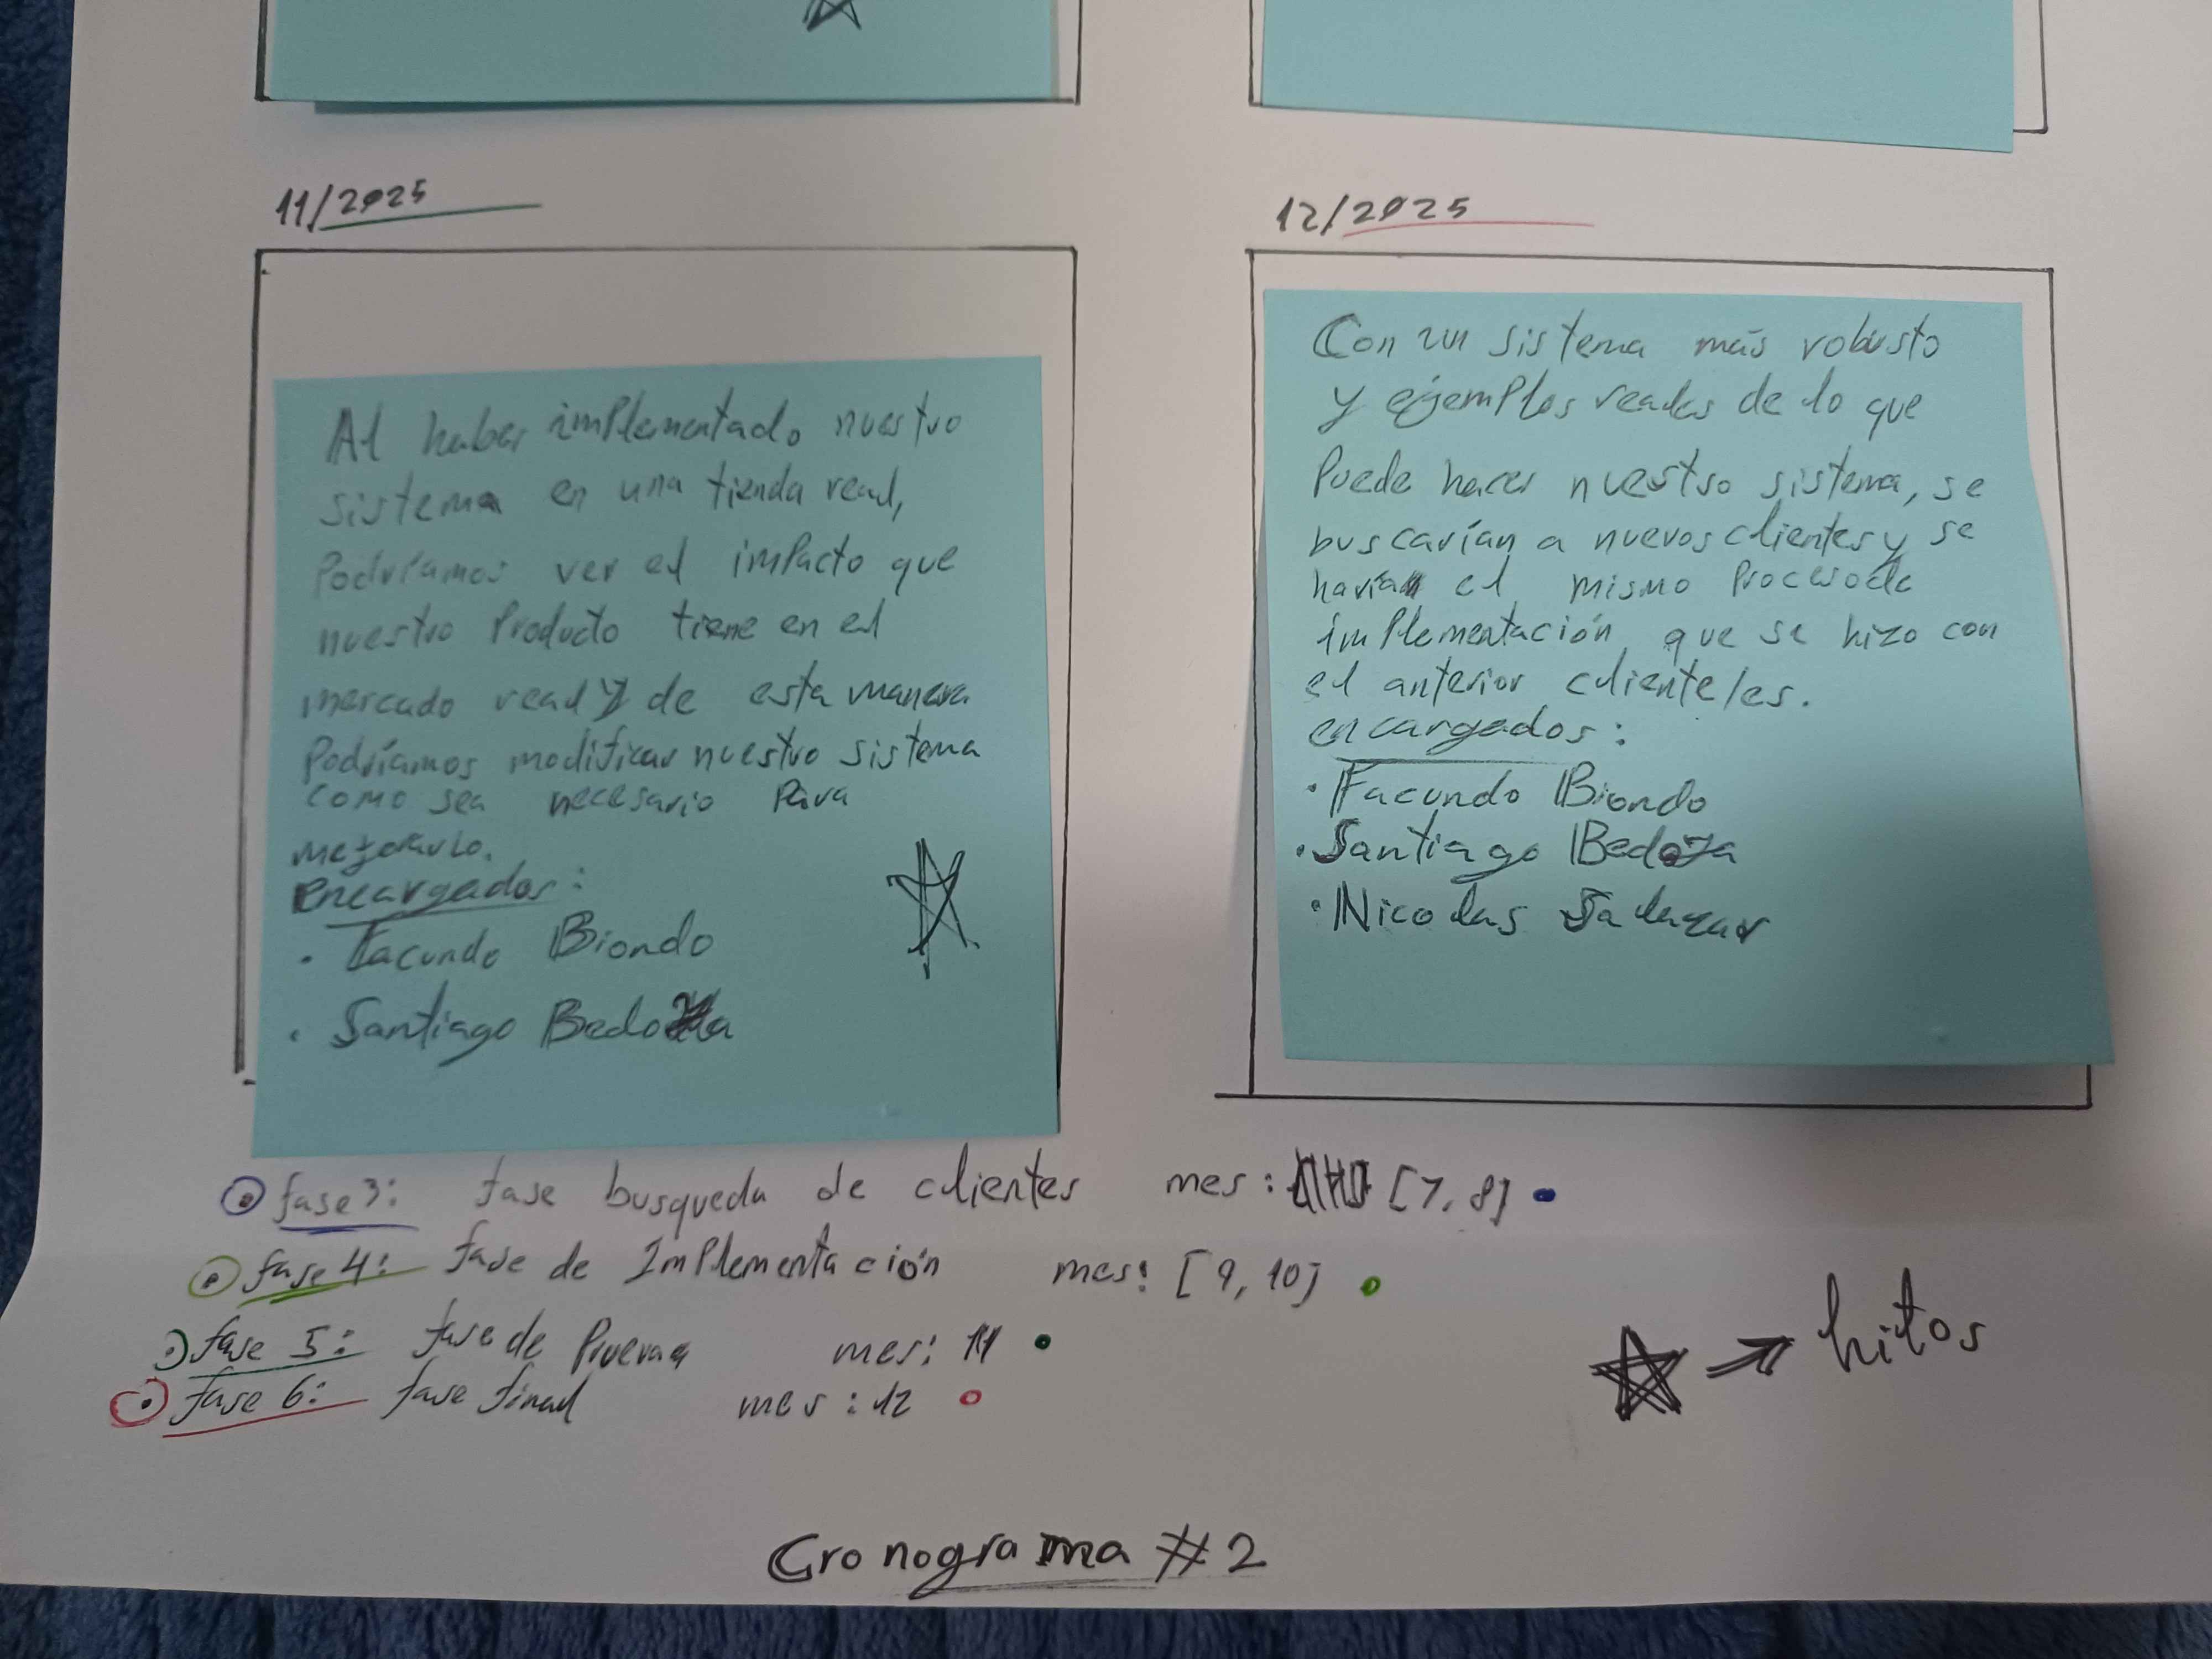 11/2025
Al haber implementado nuestro
sistema en una tienda real,
Podríamos ver el impacto que
nuestro Producto tiene en el
mercado real y de esta manera
Podríamos modificar nuestro sistema
como sea necesario Para
mejorarlo.
encargados:
· Facundo Biondo
· Santiago Bedoya
12/2025
Con un sistema más robusto
y ejemplos reales de lo que
Puede hacer nuestro sistema, se
buscarían a nuevos clientes y se
haría el mismo Proceso de
implementación que se hizo con
el anterior cliente/es.
encargados:
· Facundo Biondo
· Santiago Bedoya
· Nicolas Salazar
fase 3: fase busqueda de clientes mes: [7, 8]
fase 4: fase de Implementación mes: [9, 10]
fase 5: fase de Prueba mes: 11
fase 6: fase final mes: 12
→ hitos
Cronograma #2